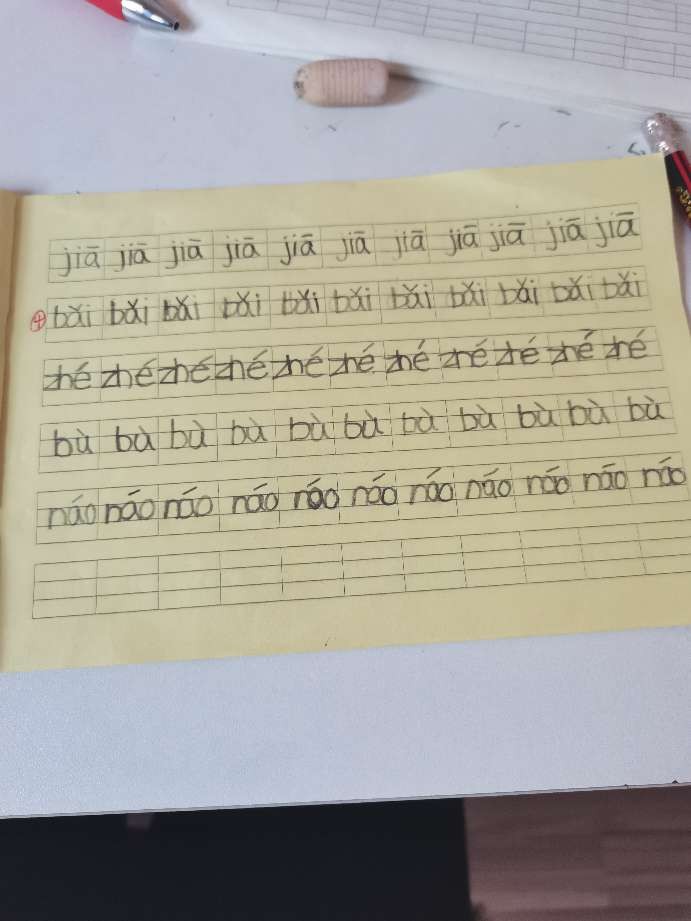 jiā jiā jiā jiā jiā jiā jiā jiā jiā jiā jiā
bǎi bǎi bǎi bǎi bǎi bǎi bǎi bǎi bǎi bǎi bǎi
zhé zhé zhé zhé zhé zhé zhé zhé zhé zhé zhé
bù bù bù bù bù bù bù bù bù bù bù
náo náo náo náo náo náo náo náo náo náo náo